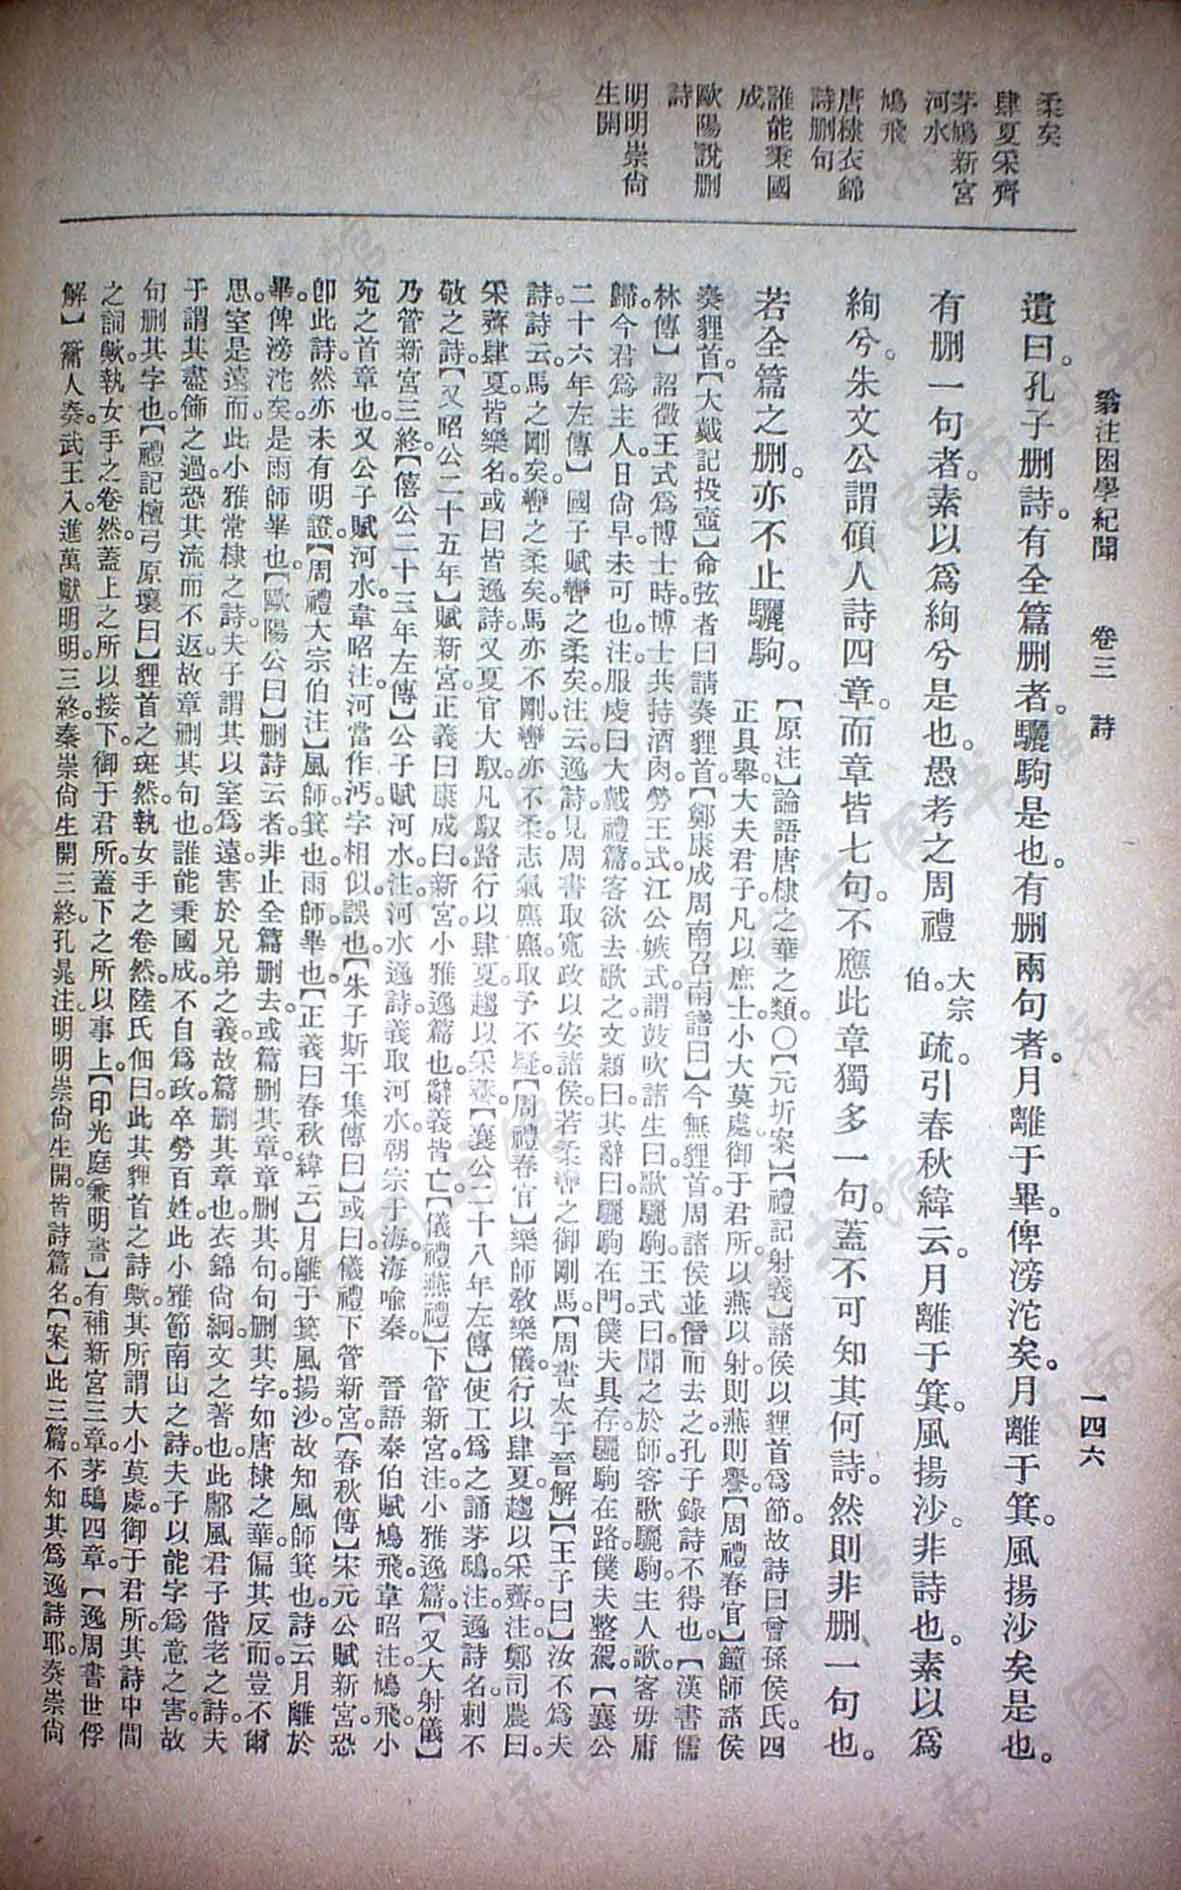 柔矣
肆夏采齊
茅鴟新宮
河水
鳩飛
唐棣衣錦
詩刪句
誰能秉國
成
歐陽說刪
詩
明明崇尙
生開
翁注困學紀聞　卷三　詩　一四六
遺曰。孔子刪詩。有全篇刪者。驪駒是也。有刪兩句者。月離于畢。俾滂沱矣。月離于箕。風揚沙矣是也。
有刪一句者。素以爲絢兮是也。愚考之周禮大宗伯。疏。引春秋緯云。月離于箕。風揚沙。非詩也。素以爲
絢兮。朱文公謂碩人詩四章。而章皆七句。不應此章獨多一句。蓋不可知其何詩。然則非刪一句也。
若全篇之刪。亦不止驪駒。【原注】論語唐棣之華之類。〇【元圻案】【禮記射義】諸侯以貍首爲節。故詩曰曾孫侯氏。四
正具舉。大夫君子。凡以庶士。小大莫處。御于君所。以燕以射。則燕則譽。【周禮春官】鐘師諸侯
奏貍首。【大戴記投壺】命弦者曰請奏貍首。【鄭康成周南召南譜曰】今無貍首。周諸侯並僭而去之。孔子錄詩不得也。【漢書儒
林傳】詔徵王式爲博士。時博士共持酒肉勞王式。江公嫉式。謂鼓吹諸生曰。歌驪駒。王式曰。聞之於師。客歌驪駒。主人歌。客毋庸
歸。今君爲主人。日尙早。未可也。注。服虔曰。大戴禮篇。客欲去歌之。文穎曰。其辭曰。驪駒在門。僕夫具存。驪駒在路。僕夫整駕。【襄公
二十六年左傳】國子賦轡之柔矣。注云。逸詩。見周書。取寬政以安諸侯。若柔轡之御剛馬。【周書太子晉解】【王子曰】汝不爲夫
詩。詩云。馬之剛矣。轡之柔矣。馬亦不剛。轡亦不柔。志氣麃麃。取予不疑。【周禮春官】樂師敎樂儀。行以肆夏。趨以采齊。注。鄭司農曰。
采薺肆夏。皆樂名。或曰皆逸詩。又夏官大馭。凡馭路行以肆夏。趨以采薺。【襄公二十八年左傳】使工爲之誦茅鴟。注。逸詩名。刺不
敬之詩。【又昭公二十五年】賦新宮。正義曰。康成曰。新宮。小雅逸篇也。辭義皆亡。【儀禮燕禮】下管新宮。注。小雅逸篇。【又大射儀】
乃管新宮三終。【僖公二十三年左傳】公子賦河水。注。河水逸詩。義取河水。朝宗于海。海喻秦。晉語秦伯賦鳩飛。韋昭注。鳩飛。小
宛之首章也。又公子賦河水。韋昭注。河當作沔。字相似。誤也。【朱子斯干集傳曰】或曰。儀禮下管新宮。【春秋傳】宋元公賦新宮。恐
卽此詩。然亦未有明證。【周禮大宗伯注】風師。箕也。雨師。畢也。【正義曰春秋緯云】月離于箕風揚沙。故知風師箕也。詩云月離於
畢。俾滂沱矣。是雨師畢也。【歐陽公曰】刪詩云者。非止全篇刪去。或篇刪其章。章刪其句。句刪其字。如唐棣之華。偏其反而。豈不爾
思。室是遠而。此小雅常棣之詩。夫子謂其以室爲遠。害於兄弟之義。故篇刪其章也。衣錦尙絅。文之著也。此鄘風君子偕老之詩。夫
子謂其盡飾之過。恐其流而不返。故章刪其句也。誰能秉國成。不自爲政。卒勞百姓。此小雅節南山之詩。夫子以能字爲意之害。故
句刪其字也。【禮記檀弓原壤曰】貍首之斑然。執女手之卷然。陸氏佃曰。此其貍首之詩歟。其所謂大小莫處。御于君所。其詩中間
之詞歟。執女手之卷然。蓋上之所以接下。御于君所。蓋下之所以事上。【印光庭兼明書】有補新宮三章。茅鴟四章。【逸周書世俘
解】籥人奏武。王入。進萬獻明明。三終。秦崇尙生開三終。孔晁注。明明崇尙生開。皆詩篇名。【案】此三篇。不知其爲逸詩耶。奏崇尙